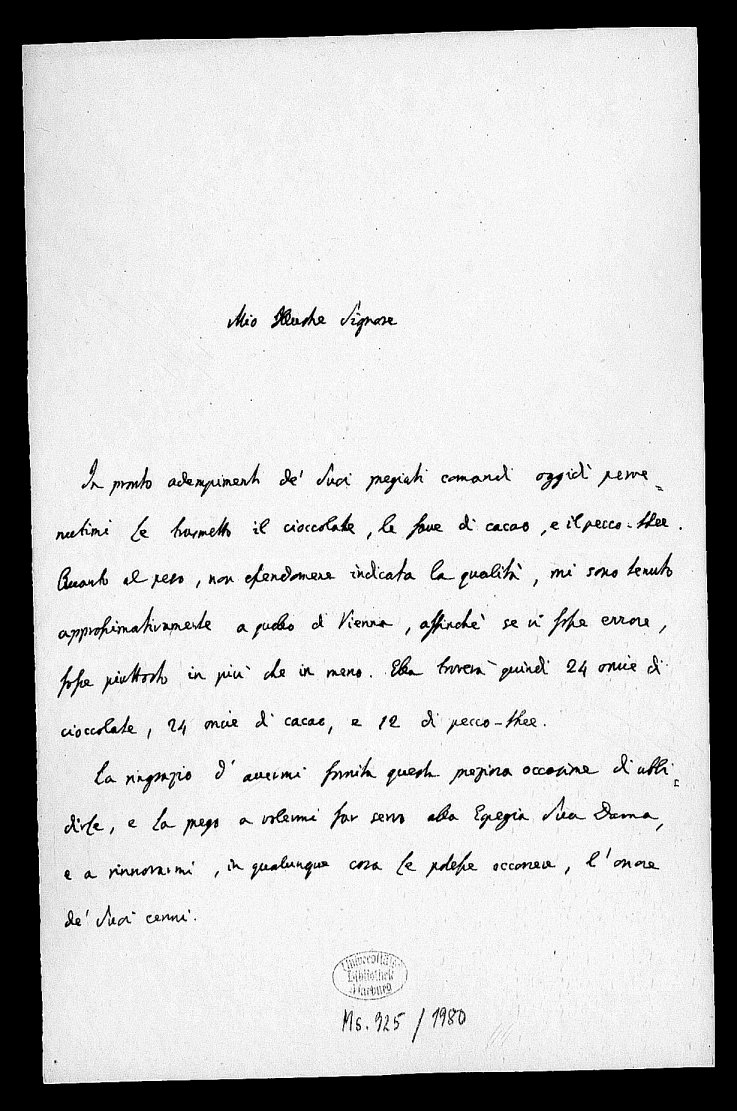 Mio Illustre Signore
In pronto adempimento de' Suoi pregiati comandi oggidì perve=
nutimi Le trasmetto il cioccolate, le fave di cacao, e il pecco-thee.
Quanto al peso, non essendomene indicata la qualità, mi sono tenuto
approssimativamente a quello di Vienna, affinchè se vi fosse errore,
fosse piuttosto in più che in meno. Ella troverà quindi 24 oncie di
cioccolate, 24 oncie di cacao, e 12 di pecco-thee.
La ringrazio d'avermi fornita questa preziosa occasione di ubbi=
dirle, e La prego a volermi far servo alla Egregia Sua Dama,
e a rinnovarmi, in qualunque cosa Le potesse occorrere, l'onore
de' Suoi cenni.
Universitäts
Bibliothek
Marburg
Ms. 925 / 1980